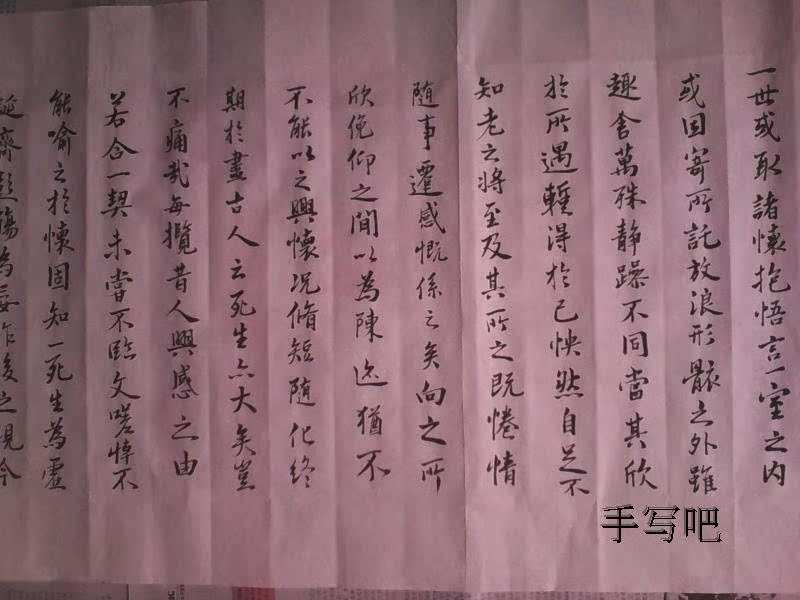 一世或取諸懷抱悟言一室之内
或因寄所託放浪形骸之外雖
趣舍萬殊静躁不同當其欣
於所遇輊得於己怏然自足不
知老之將至及其所之既惓情
随事遷感慨係之矣向之所
欣俛仰之間以為陳迹猶不
不能以之興懷况脩短随化終
期於盡古人云死生亦大矣豈
不痛哉每攬昔人興感之由
若合一契未嘗不臨文嗟悼不
能喻之於懷固知一死生為虛
誕齊彭殤為妄作後之視今
手写吧